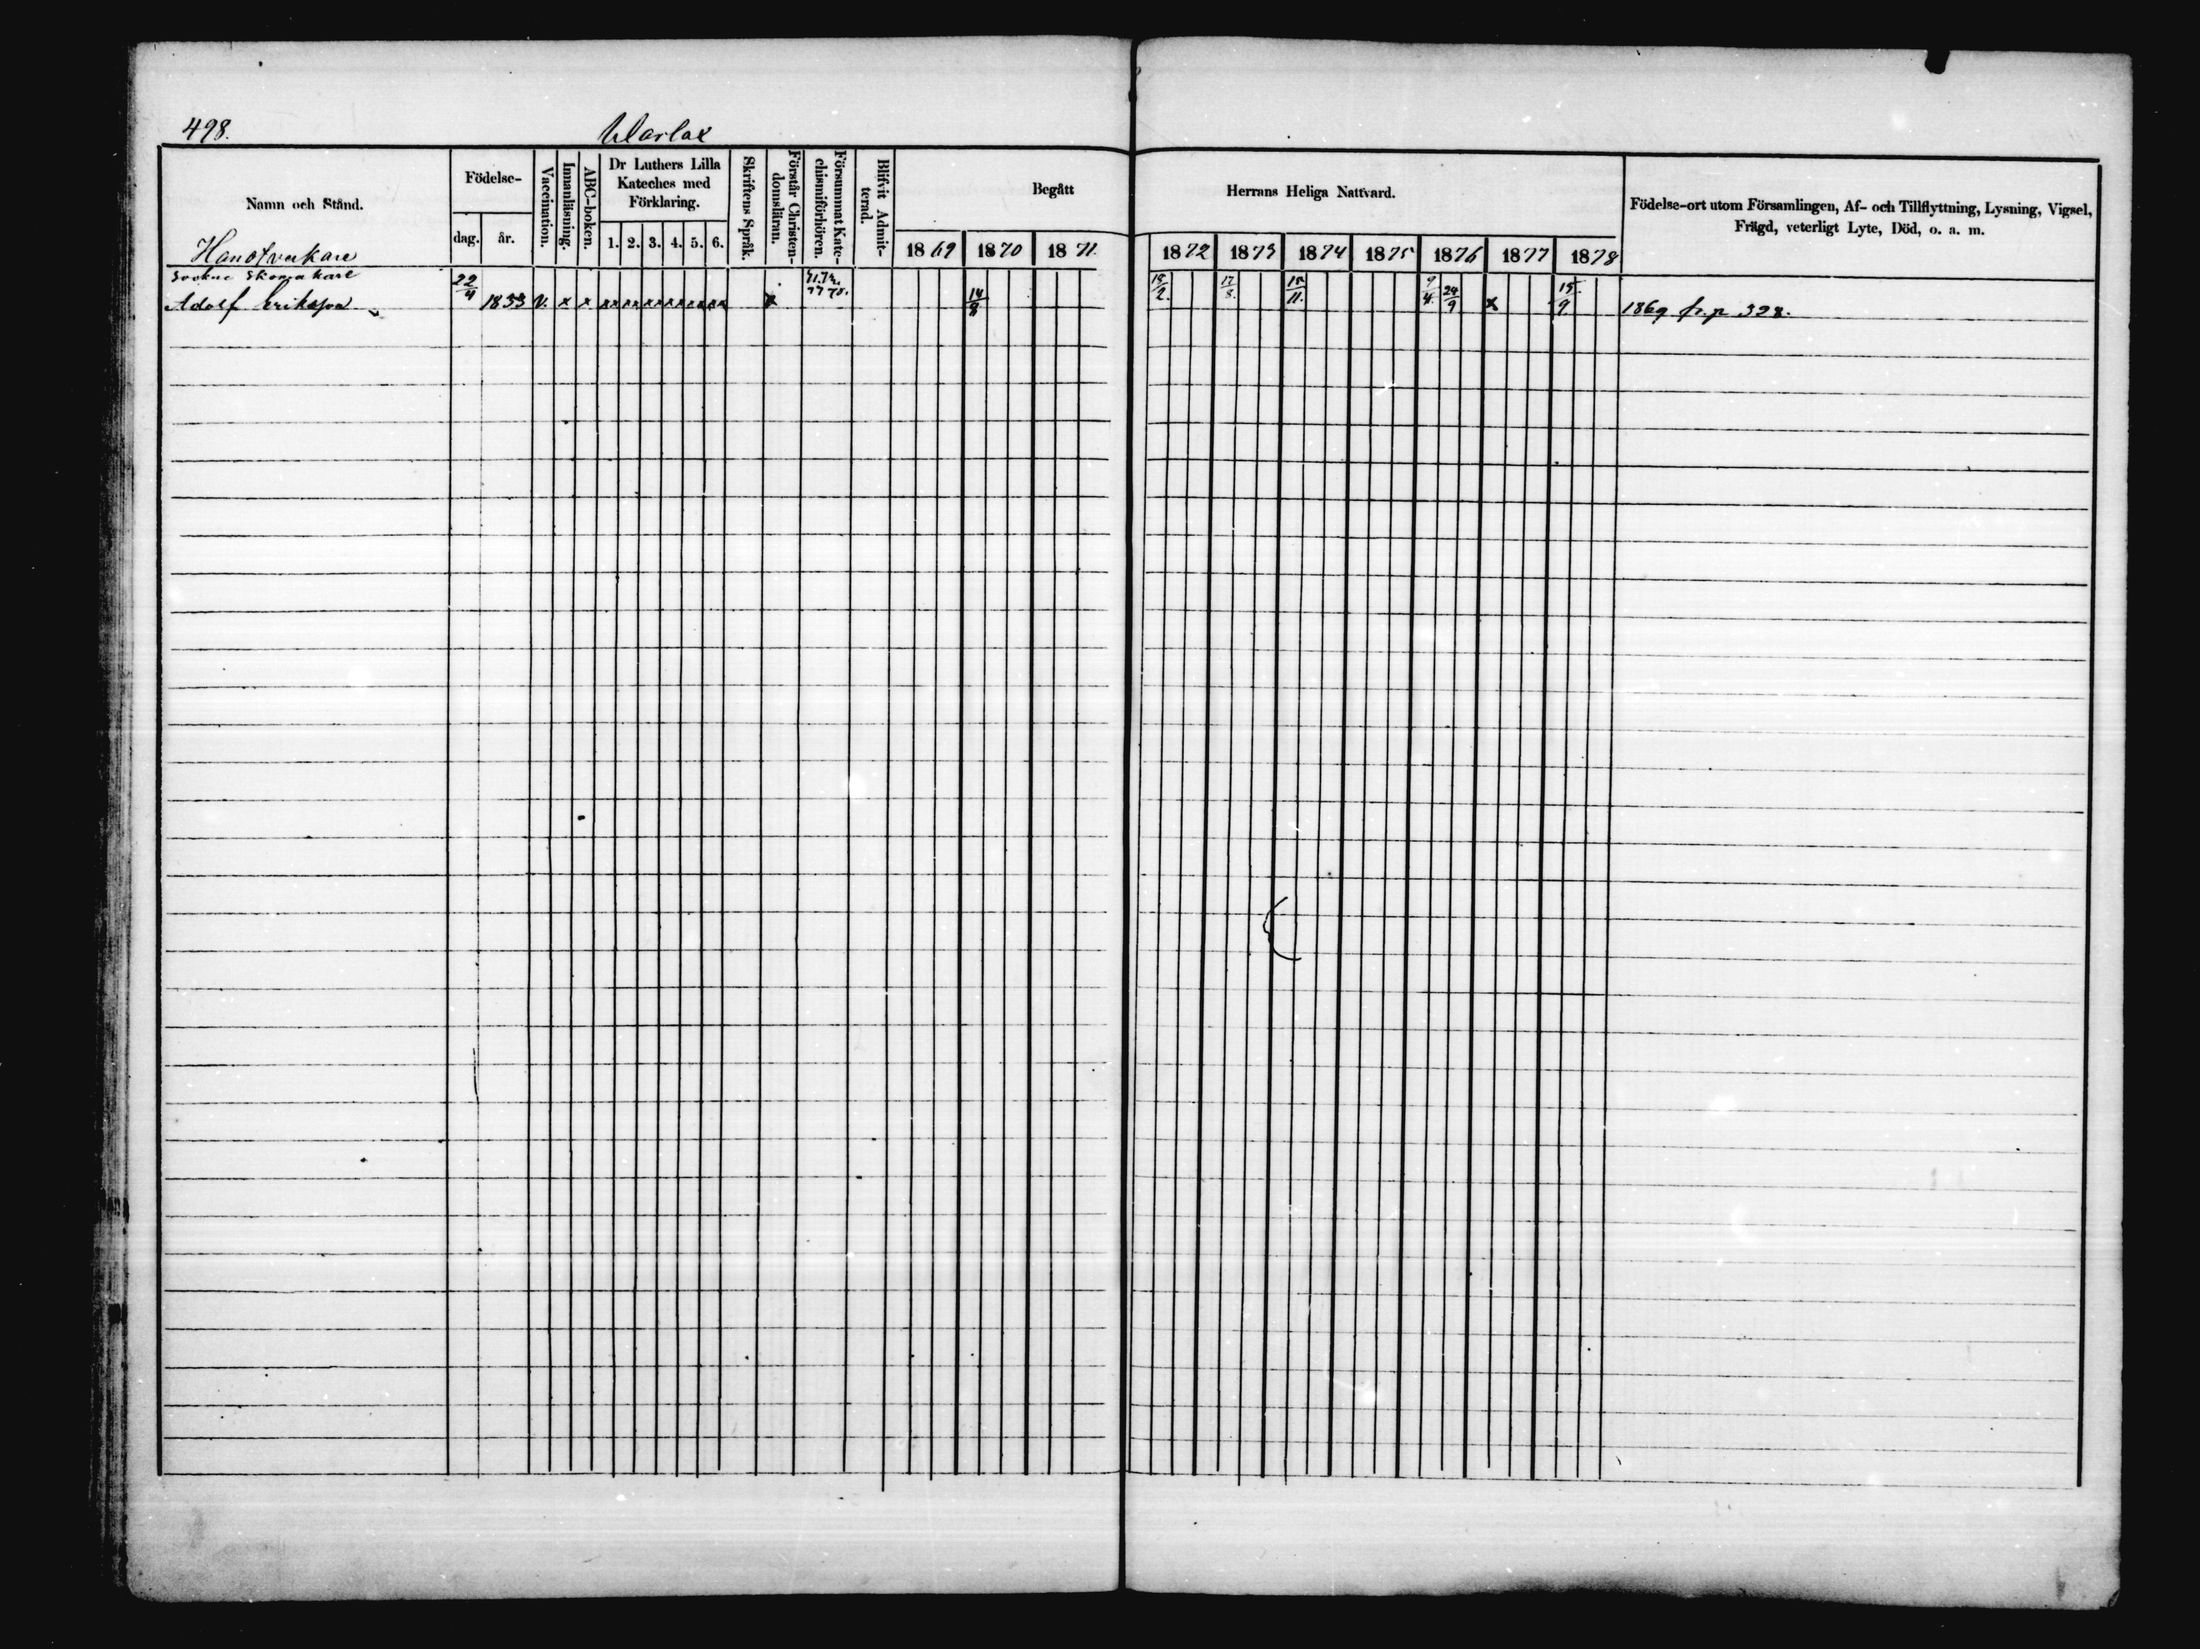 498.
Warlax
Namn och Stånd.
Födelse-
dag.
år.
Vaccination.
Innanläsning.
ABC-boken.
Dr Luthers Lilla
Kateches med
Förklaring.
1. 2. 3. 4. 5. 6.
Skriftens Språk.
Förstår Christen-
domsläran.
Försummat Kate-
chismiförhören.
Blifvit Admit-
terad.
Begått
Herrans Heliga Nattvard.
1869 1870 1871.
1872 1873 1874 1875 1876 1877 1878
Födelse-ort utom Församlingen, Af- och Tillflyttning, Lysning, Vigsel,
Frägd, veterligt Lyte, Död, o. a. m.
Handtverkare
Sockne Skomakare
Adolf Eriksson 22/4 1833 V. x x xx xx xx xx xx xx x 14/8 18/2. 17/8. 15/11. 9/4. 24/9 x 15/9 1869 fr. p 328.